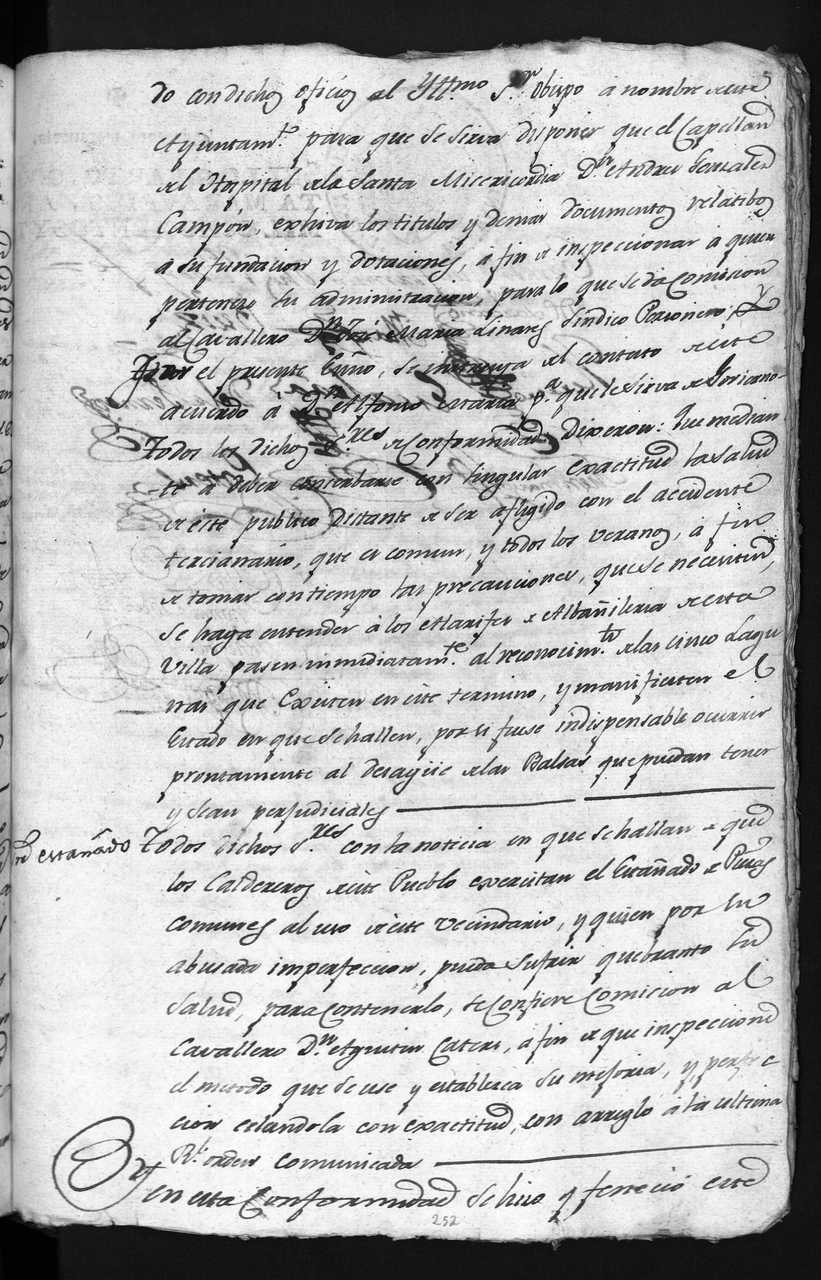 do con dichos oficios al Yllmo Sr. Obispo a nombre de este
Ayuntamto. para que se sirva disponer que el Capellan
del Hospital de la Santa Misericordia Dn. Andres Gonzales
Campón, exhiva los titulos y demas documentos relatibos
a su fundacion y dotaciones, a fin de inspeccionar à quien
pertenese su administracion, para lo que se da Comision
al Cavallero Dn. José Maria Linares Sindico Personero; Y
por el presente Esno, se instruya del contexto de este
acuerdo à Dn. Alfonso pa. que le sirva de Govierno
Todos los dichos Sres. de Conformidad, Dixeron: Que median
te a deber conserbarse con singular exactitud la salud
de este publico distante de ser afligido con el accidente
tercianario, que es comun, y todos los veranos, à fin
de tomar con tiempo las precauciones, que se necesiten,
se haga entender à los Alarifes de Albañileria de esta
Villa pasen inmediatamte. al reconocimto. de las cinco Lagu
nas que Existen en este termino, y manifiesten el
Estado en que se hallen, por si fuese indispensable ocurrir
prontamente al desagüe de las Balsas que puedan tener
y sean perjudiciales
estañado Todos dichos Sres. con la noticia en que se hallan de que
los Caldereros de este Pueblo executan el Estañado de Piezas
comunes al uso de este vecindario, y quien por su
abusada imperfeccion, pueda sufrir quebranto su
salud, para Contenerlo, se Confiere Comicion al
Cavallero Dn. Agustin , à fin de que inspeccione
el metodo que se use y establesca su mejoria, y perfec
cion celandola con exactitud, con arreglo à la ultima
Rl. orden comunicada
en esta Conformidad se hiso y feneció este
252